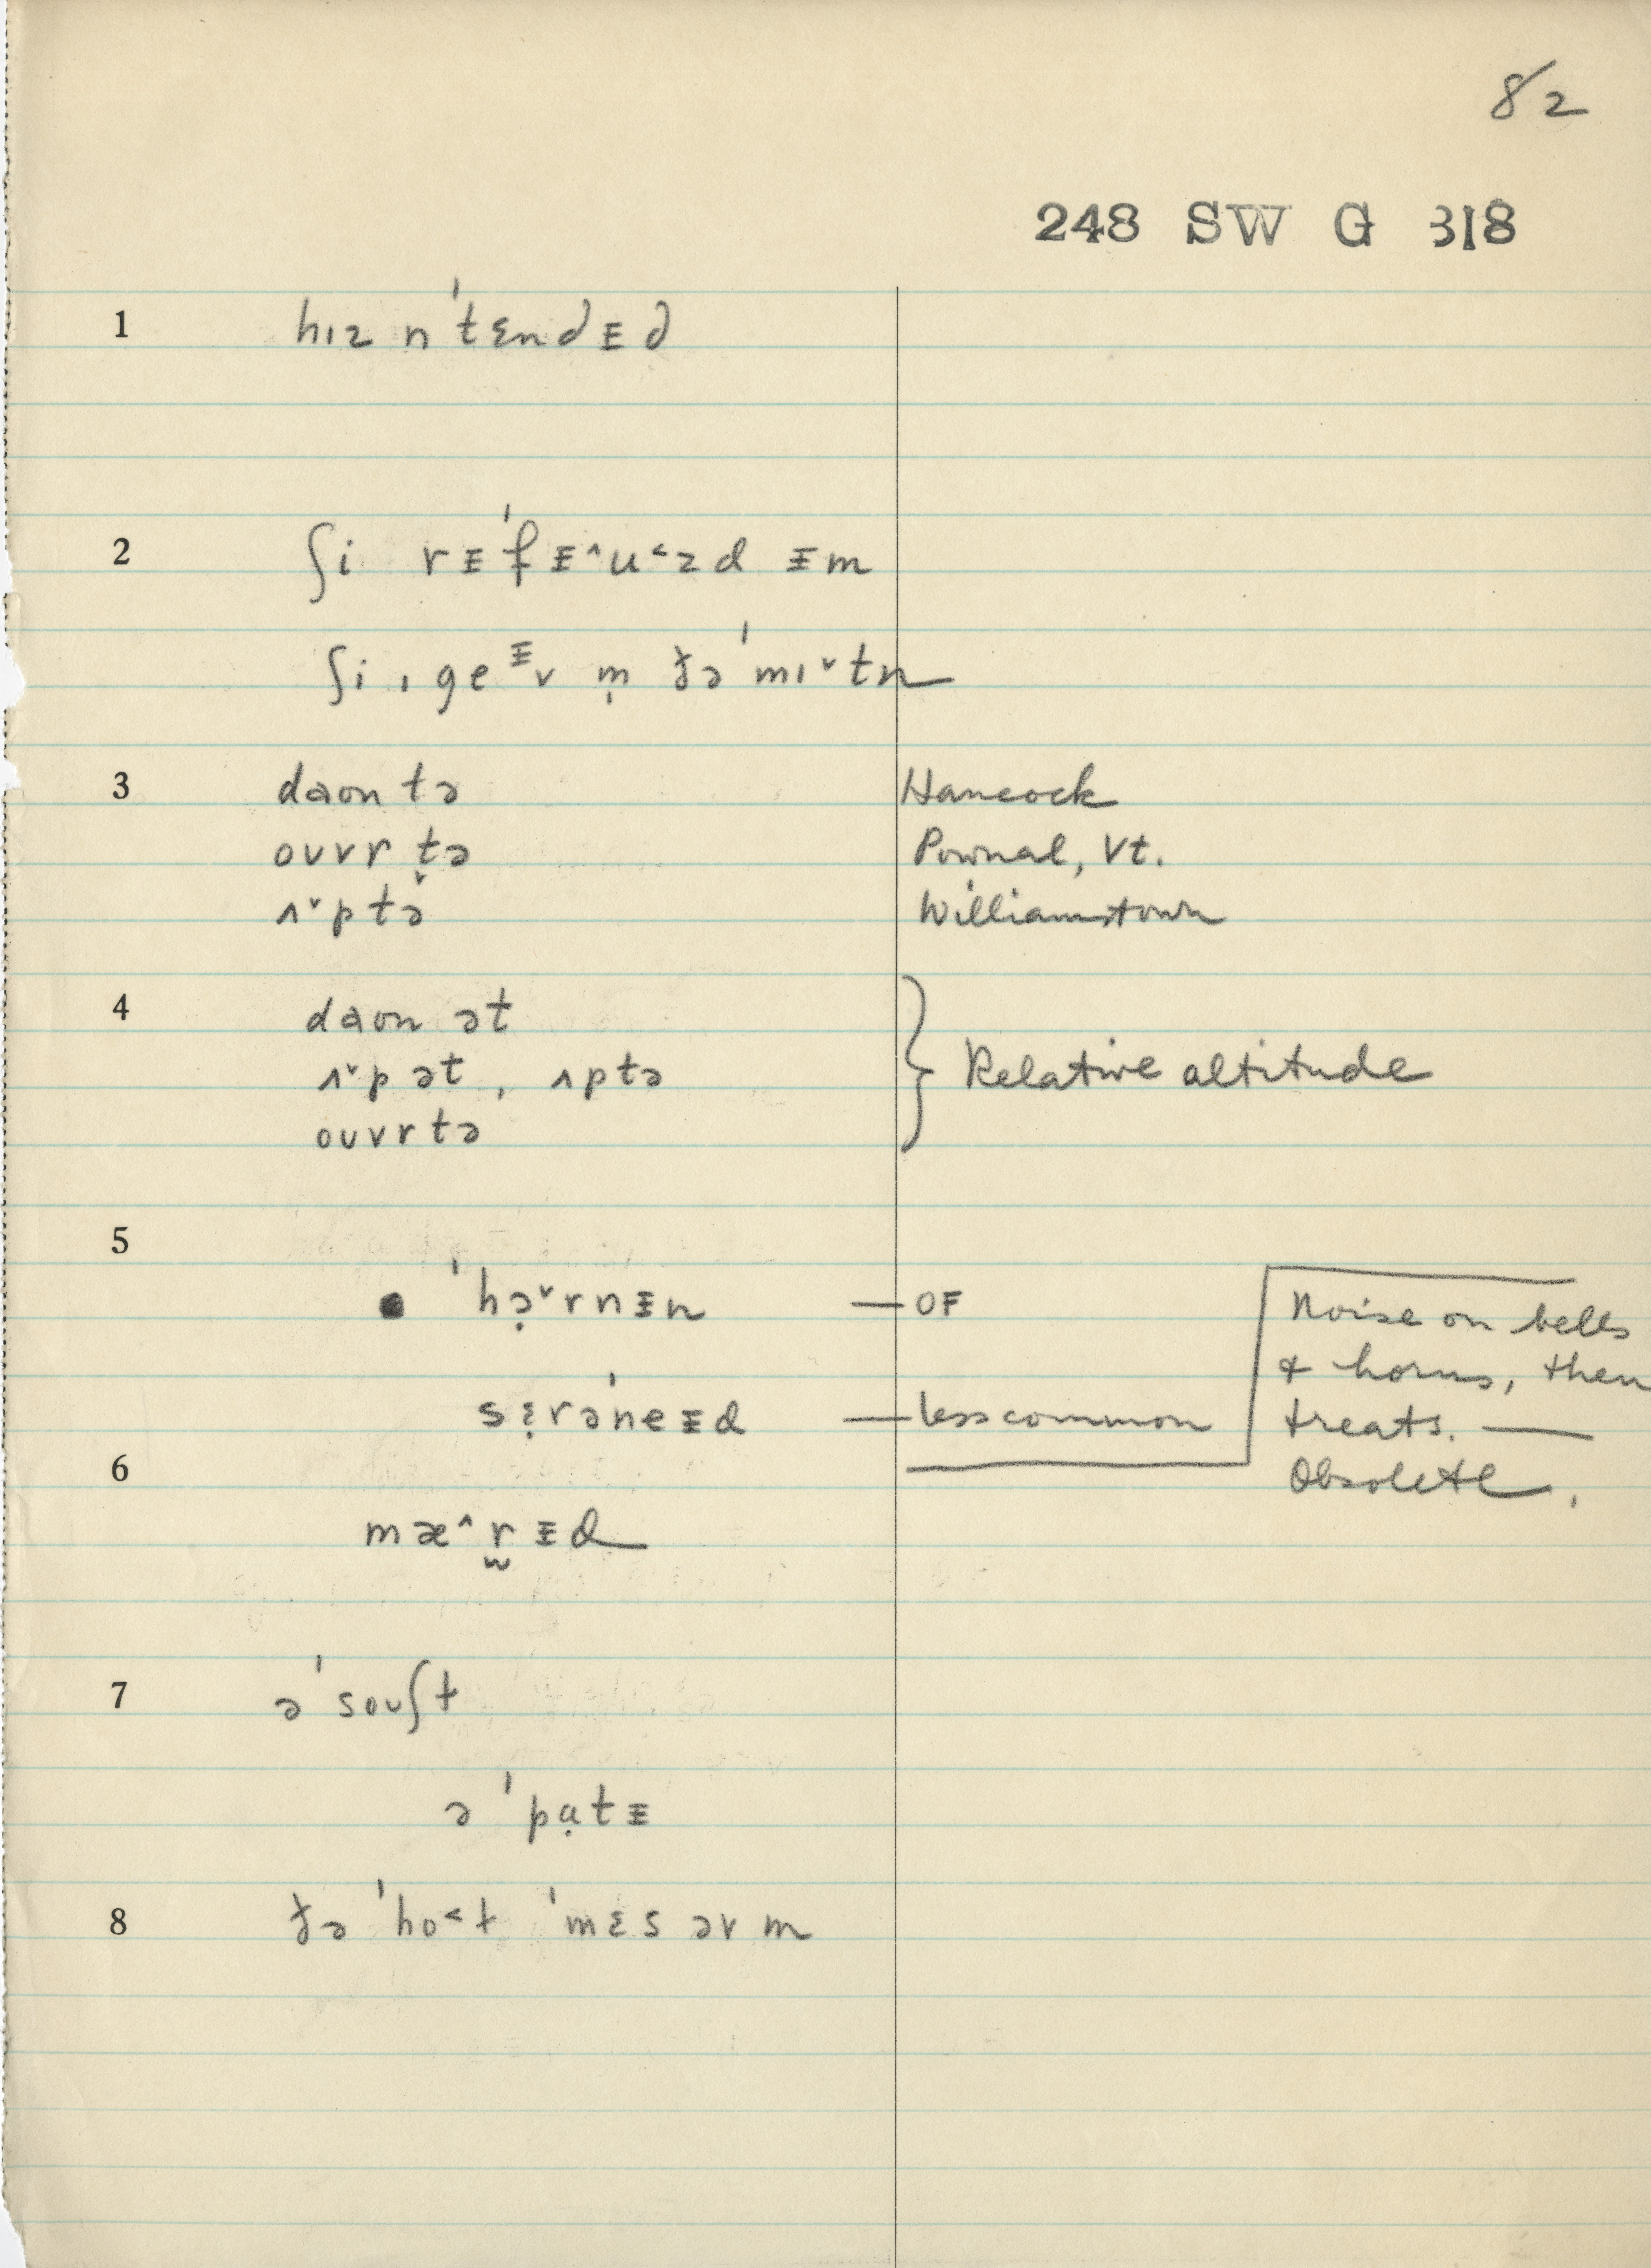 82
248 SW G 318
1 hɪz n'tɛndᵻd
2 ʃi rᵻ'fᵻ^u˂zd ᵻm
ʃi ˌgeᵻv m̩ ðə'mɪ˅tn
3 daʊn tə Hancock
oʊvr tə Pownal, Vt.
ʌ˅p tə Williamstown
4 daʊn ət
ʌ˅p ət, ʌp tə } Relative altitude
oʊvr tə
5
● 'hɔ̣˅rnᵻn — OF
sɛ̣rə'neᵻd — less common
Noise on bells
& horns, then
treats. —
Obsolete.
6
mæ^r̰ᵻd
7 ə 'soʊʃt
ə 'pɑ̣tᵻ
8 ðə 'ho˂t 'mɛs əv m